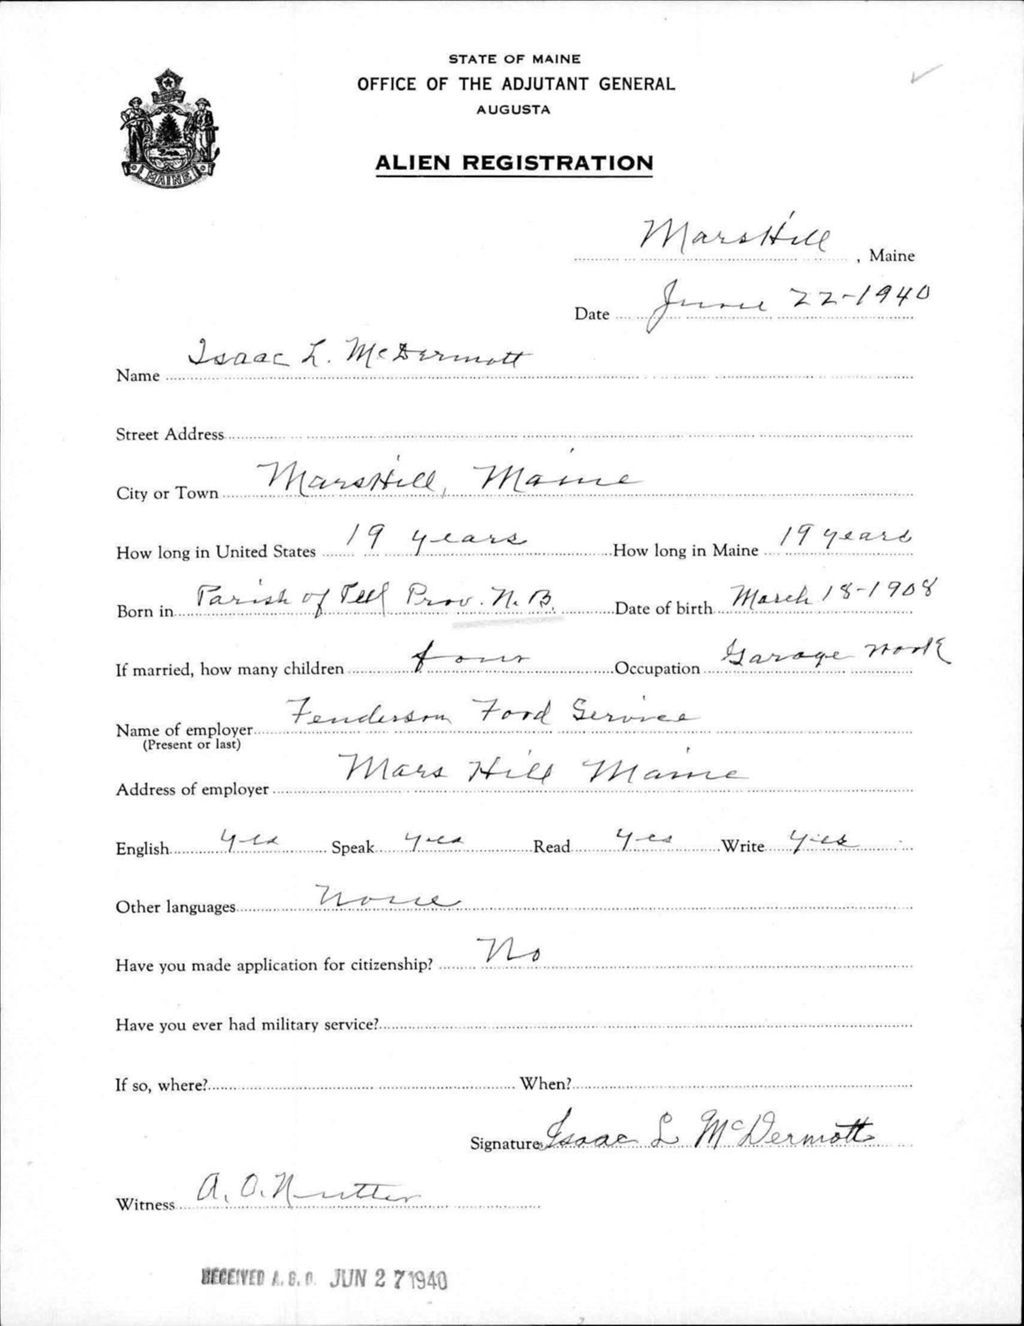 STATE OF MAINE
OFFICE OF THE ADJUTANT GENERAL
AUGUSTA
ALIEN REGISTRATION
MAINE
Mars Hill, Maine
Date June 22-1940
Name Isaac L. McDermott
Street Address
City or Town Mars Hill, Maine
How long in United States 19 years How long in Maine 19 years
Born in Parish of Peel Prov. N.B. Date of birth March 18-1908
If married, how many children four Occupation Garage Work
Name of employer Fenderson Food Service
(Present or last)
Address of employer Mars Hill Maine
English yes Speak yes Read yes Write yes
Other languages None
Have you made application for citizenship? No
Have you ever had military service?
If so, where? When?
Signature Isaac L McDermott
Witness A. O. Nutter
RECEIVED A.G.O. JUN 27 1940